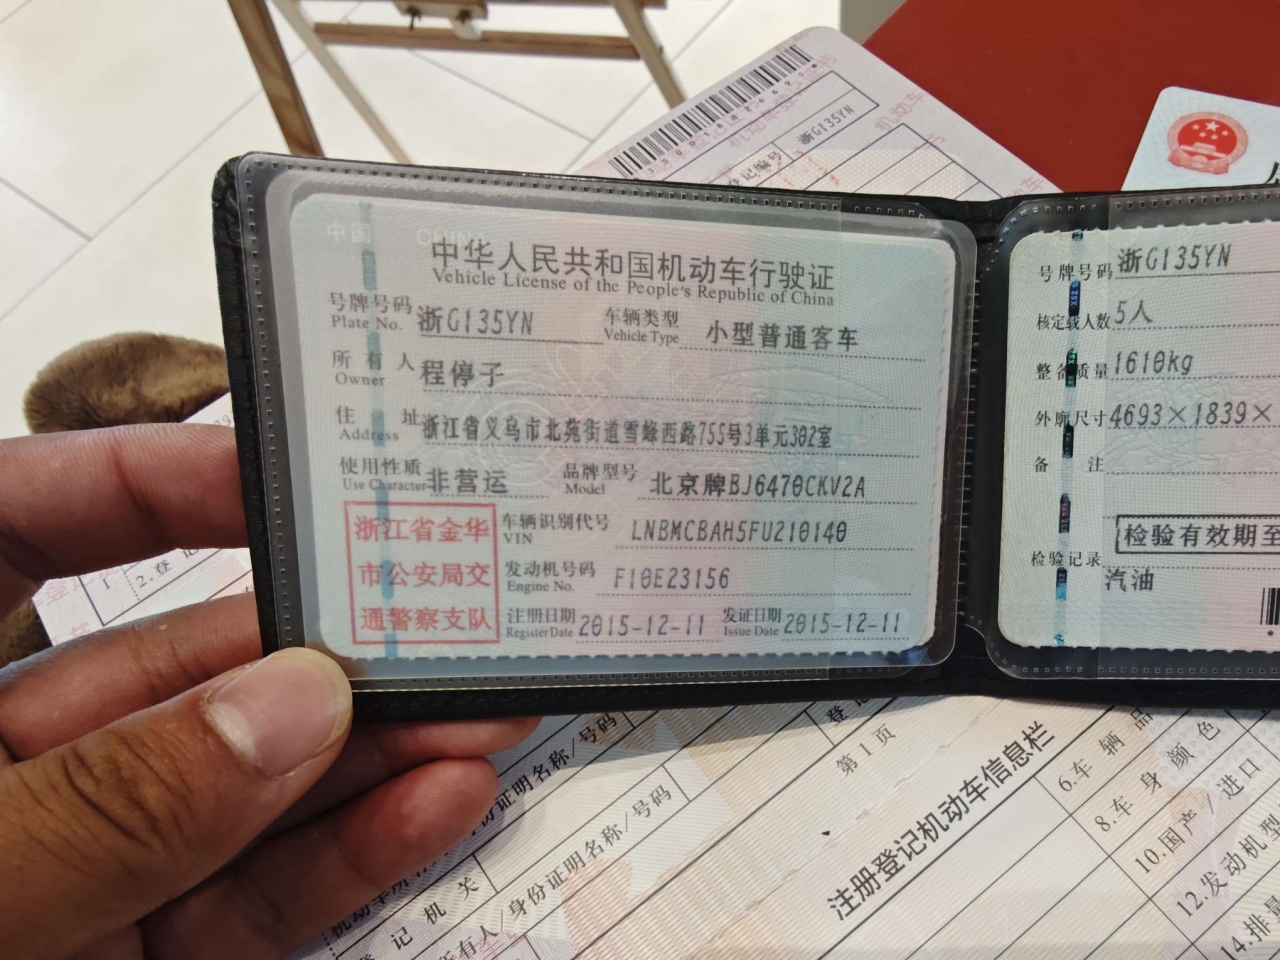 中国 CHINA
中华人民共和国机动车行驶证
Vehicle License of the People's Republic of China
号牌号码 浙G135YN 车辆类型 小型普通客车
Plate No. Vehicle Type
所有人 程停子
Owner
住址 浙江省义乌市北苑街道雪峰西路755号3单元302室
Address
使用性质 非营运 品牌型号 北京牌BJ6470CKV2A
Use Character Model
浙江省金华
市公安局交
通警察支队
车辆识别代号 LNBMCBAH5FU210140
VIN
发动机号码 F10E23156
Engine No.
注册日期 2015-12-11 发证日期 2015-12-11
Register Date Issue Date
号牌号码 浙G135YN
核定载人数 5人
整备质量 1610kg
外廓尺寸 4693×1839×
备注
检验有效期至
检验记录
汽油
登记编号 浙G135YN
机动车
1
2.登记
身份证明名称/号码
登记机关
所有人/身份证明名称/号码
第1页
注册登记机动车信息栏
6.车辆品
8.车身颜色
10.国产/进口
12.发动机型
14.排量